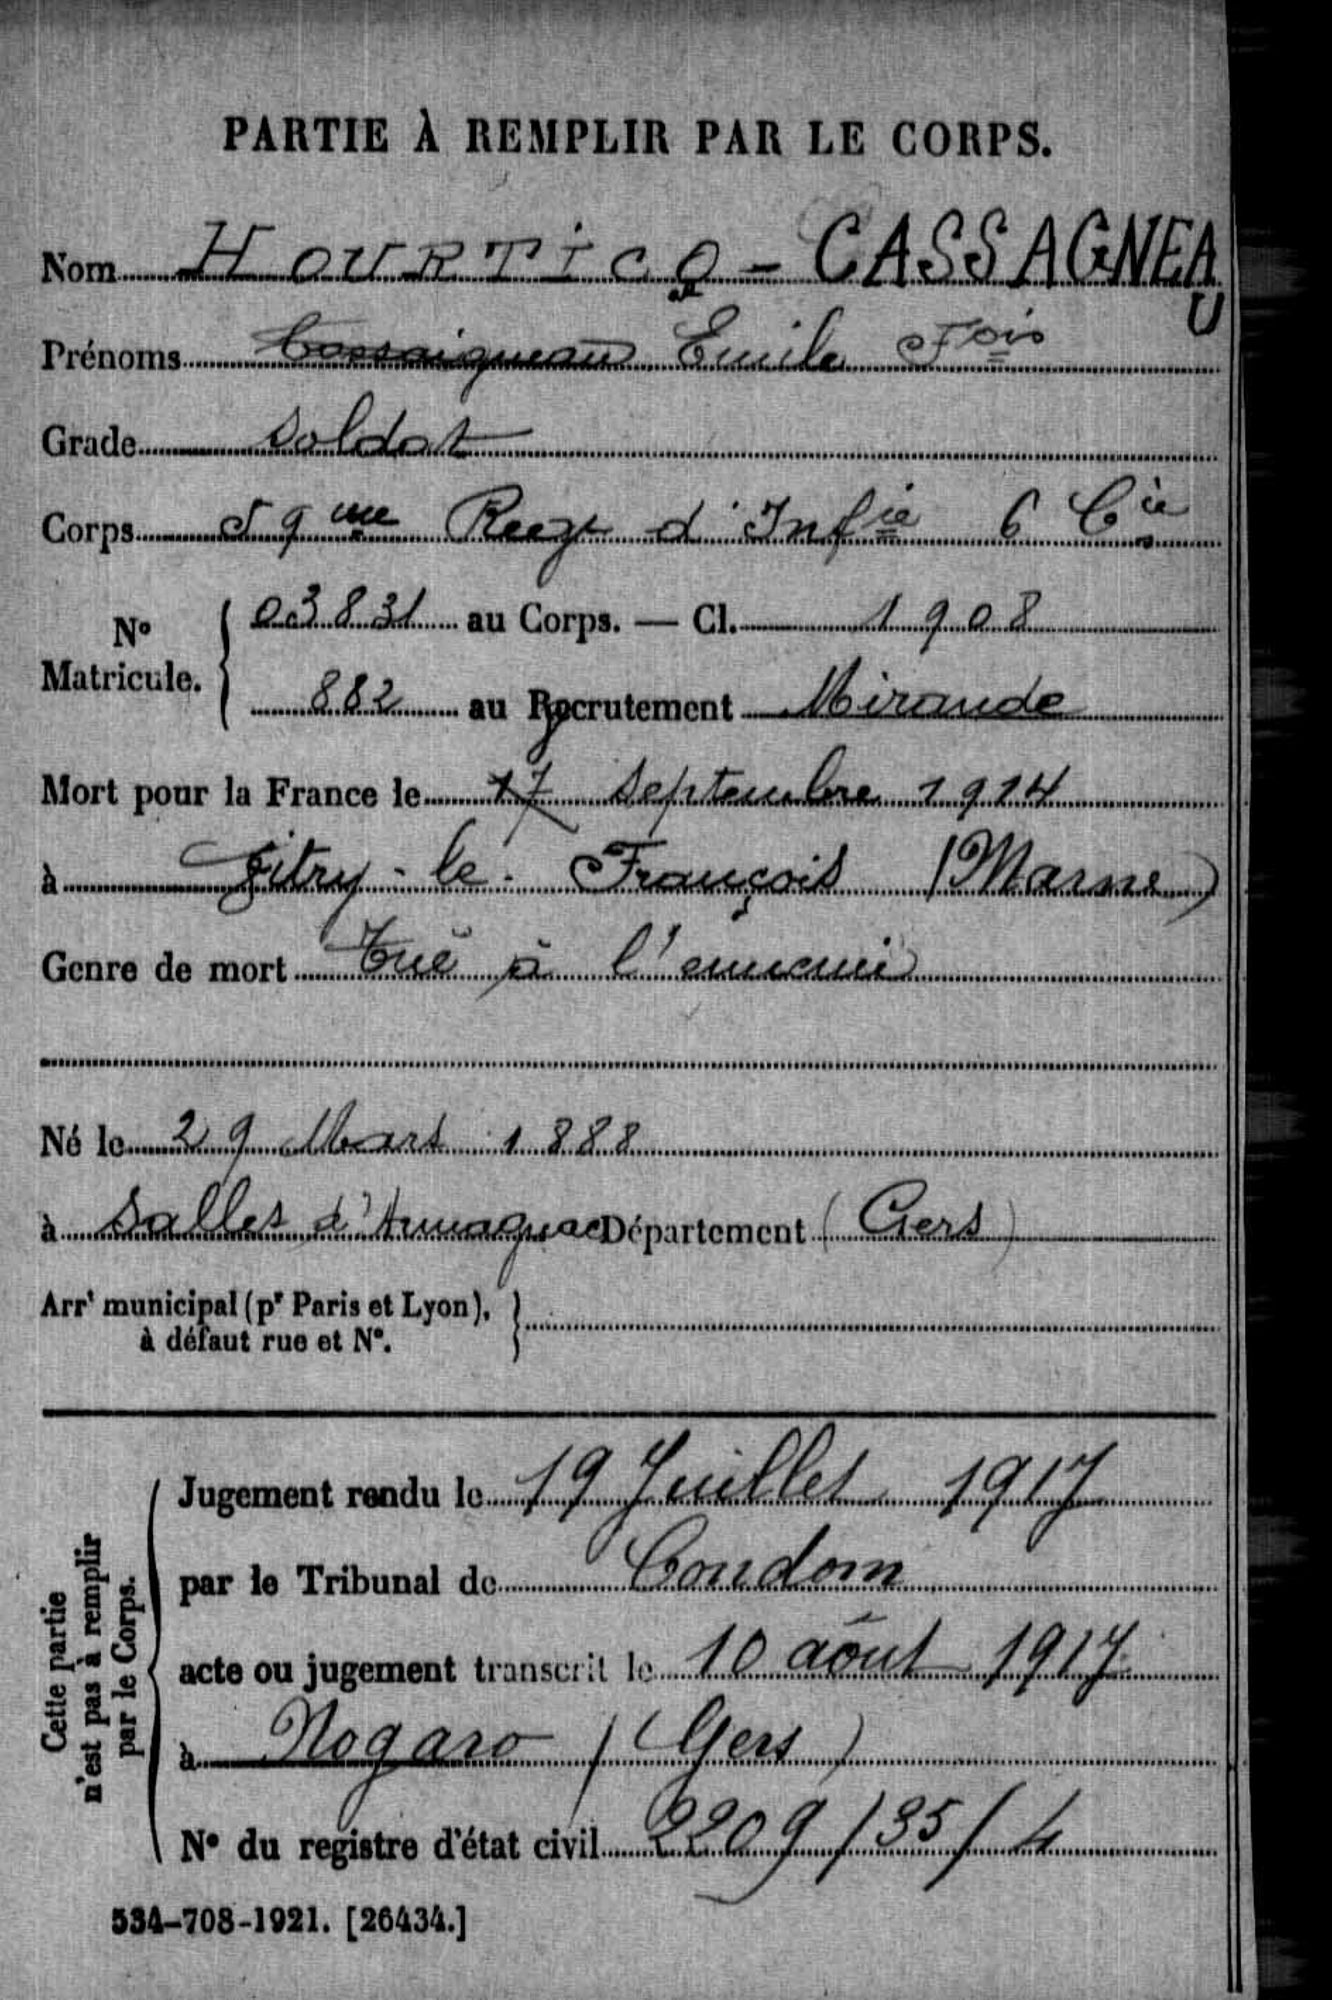 PARTIE À REMPLIR PAR LE CORPS.
Nom HOURTICQ - CASSAGNEAU
Prénoms Cassaigneau Emile Fois
Grade Soldat
Corps 59eme Regt d'Infie 6 Cie
N° Matricule. 03831 au Corps. — Cl. 1908
882 au Recrutement Mirande
Mort pour la France le 17 Septembre 1914
à Vitry-le-François (Marne)
Genre de mort Tué à l'ennemi
Né le 29 Mars 1888
à Salles d'Armagnac Département (Gers)
Arrt municipal (pr Paris et Lyon),
à défaut rue et N°.
Cette partie
n'est pas à remplir
par le Corps.
Jugement rendu le 19 Juillet 1917
par le Tribunal de Condom
acte ou jugement transcrit le 10 août 1917
à Nogaro (Gers)
N° du registre d'état civil 2209/35/4
534-708-1921. [26434.]